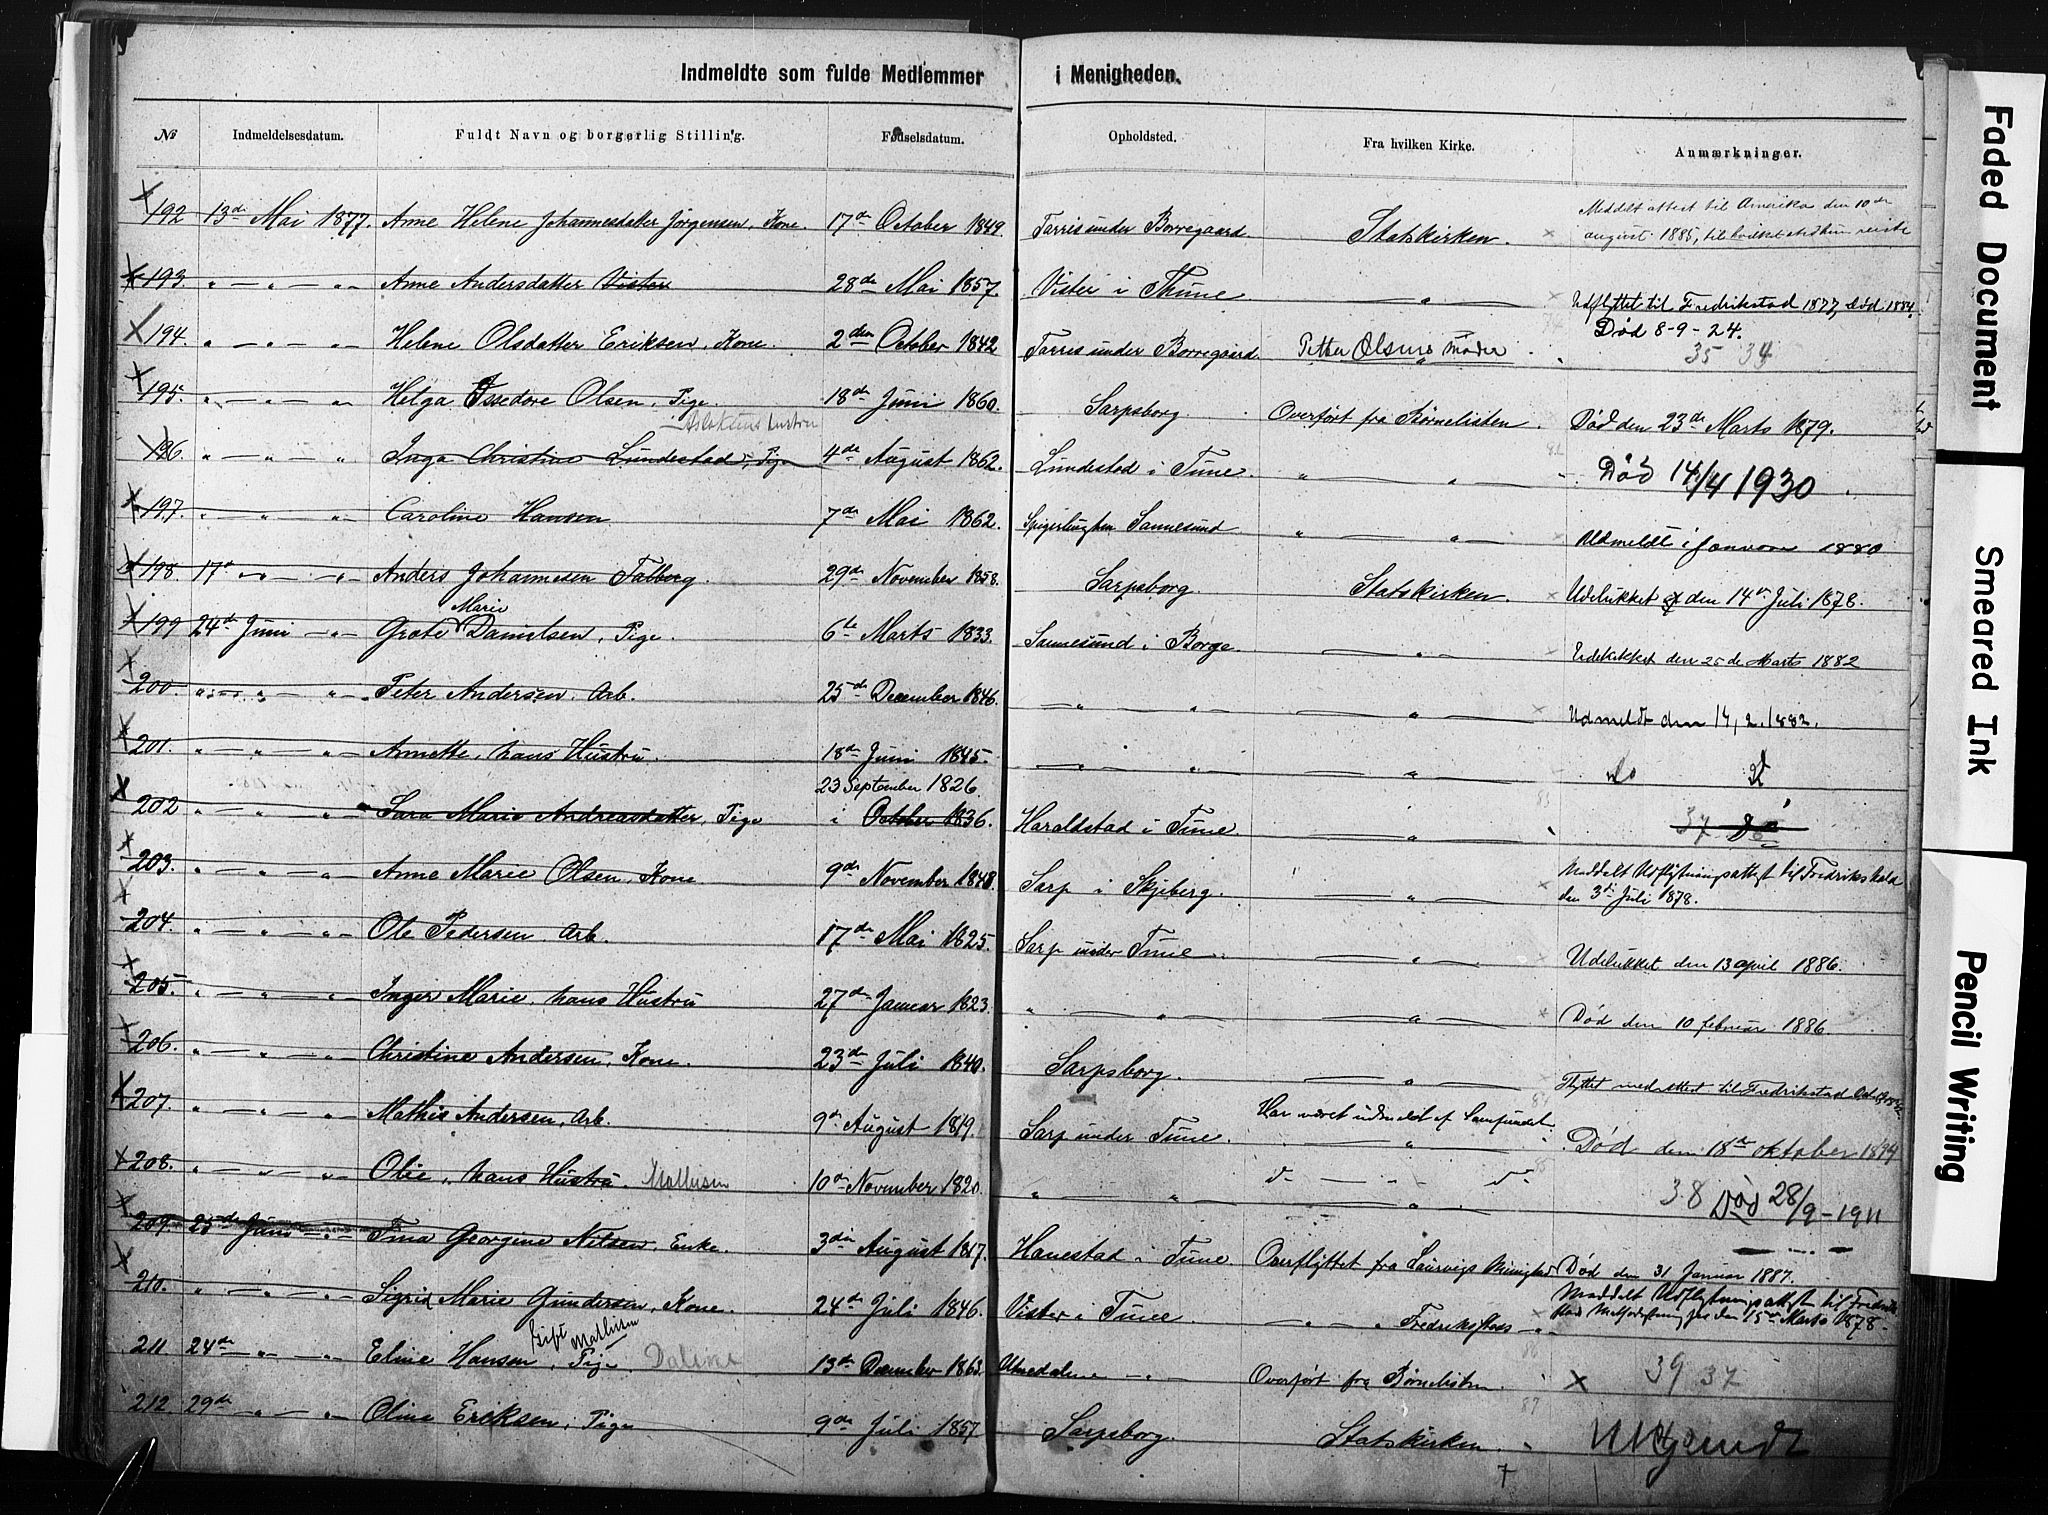 Indmeldte som fulde Medlemmer i Menigheden.
No Indmeldelsesdatum. Fuldt Navn og borgerlig Stilling. Fødselsdatum. Opholdsted. Fra hvilken Kirke. Anmærkninger.
Meddelt attest til Amerika den 10de
192 13de Mai 1877. Anne Helene Johannesdatter Jørgensen, Kone. 17de October 1849. Tarris under Borregaard Statskirken. august 1885, til hvilket Sted hun reiste
193. " " " Anne Andersdatter Vister 28de Mai 1857. Vister i Thune " Udflyttet til Fredrikstad 1877, død 1884.
Død 8-9-24.
194. " " " Helene Olsdatter Eriksen, Kone. 2den October 1842 Tarris under Borregaard Petter Olsens Moder 35 34
195. " " " Helga Issedore Olsen, Pige. 18de Juni 1860. Sarpsborg Overført fra Børnelisten. Død den 23de Marts 1879.
Aslaksens hustru
196. " " " Inga Christine Lundestad, Pige 4de August 1862. Lundestad i Tune " " Død 14/4 1930
197. " " " Caroline Hansen 7de Mai 1862. Sannesund " " Udmeldt i Januar 1880
198 17de " " Anders Johannesen Talberg. 29de November 1858. Sarpsborg Statskirken. Udelukket den 14de Juli 1878.
Marie
199 24de Juni " Grete Danielsen, Pige. 6te Marts 1833. Sannesund i Borge " Udelukket den 25de Marts 1882
200. " " " Peter Andersen, Arb. 25de December 1846. " " " Udmeldt den 14, 2. 1882.
201. " " " Annette, hans Hustru. 18de Juni 1845. " " " do d
23 September 1826.
202 " " " Sara Marie Andreasdatter, Pige i October 1836. Haraldstad i Tune " 37
203. " " " Anne Marie Olsen, Kone 9de November 1848. Sarp i Skjeberg. " Meddelt Udflytningsattest til Fredrikshald
den 3di Juli 1878.
204. " " " Ole Pedersen, Arb. 17de Mai 1825. Sarp under Tune " Udelukket den 13 april 1886.
205. " " " Inger Marie, hans Hustru 27de Januar 1823. " " " Død den 10 februar 1886
206. " " " Christine Andersen, Kone. 23de Juli 1840. Sarpsborg. " Flyttet med attest til Fredrikstad
Har været udmeldt af Samfundet
207. " " " Mathis Andersen, Arb. 9de August 1819. Sarp under Tune. " Død den 18de oktober 1894
208. " " " Olie, hans Hustru. Mathisen 10de November 1820. " " d " d 38 Død 28/9-1911
209. 25de Juni " Tina Georgine Nilsen, Enke. 3die August 1817. Hanestad i Tune Overflyttet fra Laurvigs Menighed Død den 31 Januar 1887.
Meddelt Udflytningsattest til Fredrik
210. " " " Sigrid Marie Gundersen, Kone. 24de Juli 1846. Vister i Tune. " " Fredrikstads " den 15de Marts 1878.
Gift Mathisen
211 24de " " Eline Hansen, Pige. Daline 13de December 1863. " Overført fra Børnelisten. X 39 37
212. 29de " " Oline Eriksen, Pige 9de Juli 1857 Sarpsborg. Statskirken.
7
Faded Document
Smeared Ink
Pencil Writing